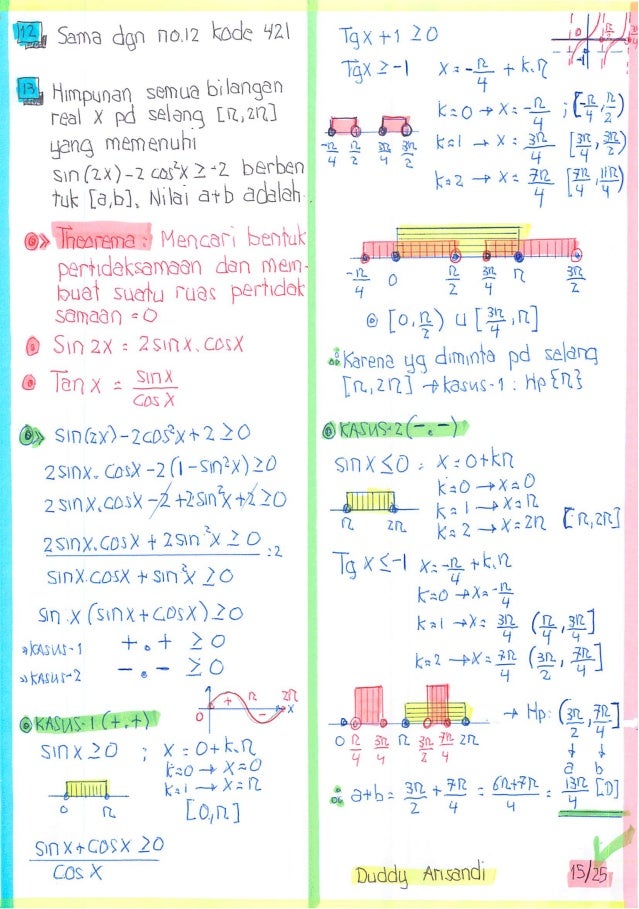 12 Sama dgn no.12 kode 421
13 Himpunan semua bilangan
real x pd selang [π,2π]
yang memenuhi
sin(2x)-2 cos²x ≥ -2 berben
tuk [a,b]. Nilai a+b adalah.
Theorema: Mencari bentuk
pertidaksamaan dan mem-
buat suatu ruas pertidak
samaan = 0
Sin 2x = 2 sin x . cos x
Tan x = sin x / cos x
sin(2x)-2cos²x+2 ≥ 0
2 sin x . cos x - 2(1-sin²x) ≥ 0
2 sin x . cos x - 2 + 2 sin²x + 2 ≥ 0
2 sin x . cos x + 2 sin²x ≥ 0 :2
sin x . cos x + sin²x ≥ 0
sin x (sin x + cos x) ≥ 0
» KASUS-1 + . + ≥ 0
» KASUS-2 - . - ≥ 0
KASUS-1 (+.+)
0 + π - 2π x
sin x ≥ 0 ; x = 0+k.π
k=0 → x=0
k=1 → x=π
0 π
[0,π]
sin x + cos x ≥ 0
cos x
Tg x + 1 ≥ 0
Tg x ≥ -1 x = -π/4 + k.π
k=0 → x = -π/4 ; [-π/4, π/2)
k=1 → x = 3π/4 [3π/4, 3π/2)
k=2 → x = 7π/4 [7π/4, 11π/4)
-π/4 π/2 3π/4 3π/2
-π/4 0 π/2 3π/4 π 3π/2
[0, π/2) U [3π/4, π]
Karena yg diminta pd selang
[π,2π] → kasus-1 : Hp{π}
KASUS-2 (-.-)
sin x ≤ 0 : x = 0+kπ
k=0 → x=0
k=1 → x=π
k=2 → x=2π [π,2π]
π 2π
Tg x ≤ -1 x = -π/4 + k.π
k=0 → x = -π/4
k=1 → x = 3π/4 (π/4, 3π/4]
k=2 → x = 7π/4 (3π/2, 7π/4]
0 π/4 3π/4 π 3π/2 7π/4 2π
→ Hp: (3π/2, 7π/4]
a b
a+b = 3π/2 + 7π/4 = 6π+7π/4 = 13π/4 [D]
Duddy Arisandi
15/25